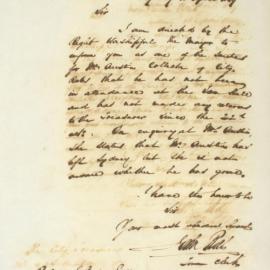 Sir
I am directed by the
Right Worshipful the Mayor to
inform you as one of the Sureties
for Mr Austin Collector of City
Rates that he has not been
in attendance at the
and has not made any returns
to the Treasurer since the 22nd
On enquiry at Mr Austin
she states that Mr Austin has
left Sydney but she is not
aware whither he has gone.
I have the honor to
Sir
Your most obedient Servant
Town Clerk